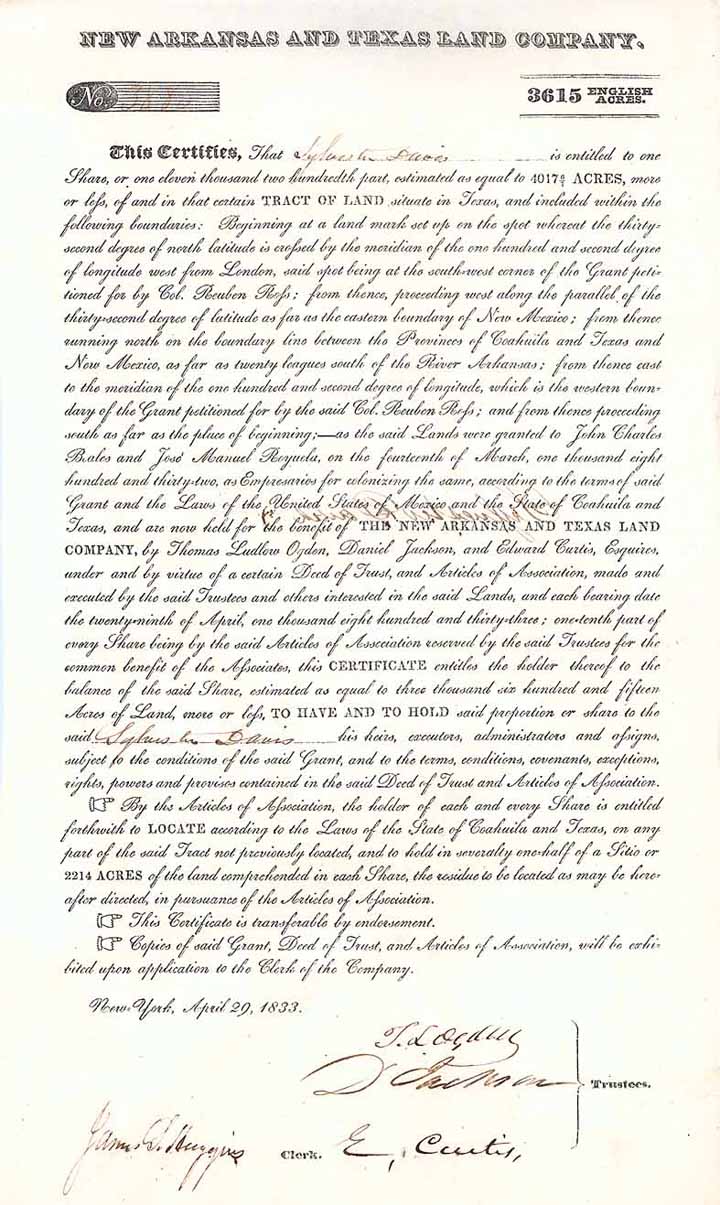 NEW ARKANSAS AND TEXAS LAND COMPANY.
No.
3615 ENGLISH ACRES.
This Certifies, That Sylvester Davis is entitled to one
Share, or one eleven thousand two hundredth part, estimated as equal to 4017 ACRES, more
or leſs, of and in that certain TRACT OF LAND situate in Texas, and included within the
following boundaries: Beginning at a land mark set up on the spot whereat the thirty-
second degree of north latitude is croſsed by the meridian of the one hundred and second degree
of longitude west from London, said spot being at the south-west corner of the Grant peti-
tioned for by Col. Reuben Roſs; from thence, proceeding west along the parallel of the
thirty-second degree of latitude as far as the eastern boundary of New Mexico; from thence
running north on the boundary line between the Provinces of Coahuila and Texas and
New Mexico, as far as twenty leagues south of the River Arkansas; from thence east
to the meridian of the one hundred and second degree of longitude, which is the western boun-
dary of the Grant petitioned for by the said Col. Reuben Roſs; and from thence proceeding
south as far as the place of beginning;—as the said Lands were granted to John Charles
Beales and José Manuel Royuela, on the fourteenth of March, one thousand eight
hundred and thirty-two, as Empresarios for colonizing the same, according to the terms of said
Grant and the Laws of the United States of Mexico and the State of Coahuila and
Texas, and are now held for the benefit of THE NEW ARKANSAS AND TEXAS LAND
COMPANY, by Thomas Ludlow Ogden, Daniel Jackson, and Edward Curtis, Esquires,
under and by virtue of a certain Deed of Trust, and Articles of Aſsociation, made and
executed by the said Trustees and others interested in the said Lands, and each bearing date
the twenty-ninth of April, one thousand eight hundred and thirty-three; one-tenth part of
every Share being by the said Articles of Aſsociation reserved by the said Trustees for the
common benefit of the Aſsociates, this CERTIFICATE entitles the holder thereof to the
balance of the said Share, estimated as equal to three thousand six hundred and fifteen
Acres of Land, more or leſs, TO HAVE AND TO HOLD said proportion or share to the
said Sylvester Davis his heirs, executors, administrators and aſsigns,
subject to the conditions of the said Grant, and to the terms, conditions, covenants, exceptions,
rights, powers and provisos contained in the said Deed of Trust and Articles of Aſsociation.
☞ By the Articles of Aſsociation, the holder of each and every Share is entitled
forthwith to LOCATE according to the Laws of the State of Coahuila and Texas, on any
part of the said Tract not previously located, and to hold in severalty one-half of a Sitio or
2214 ACRES of the land comprehended in each Share, the residue to be located as may be here-
after directed, in pursuance of the Articles of Aſsociation.
☞ This Certificate is transferable by endorsement.
☞ Copies of said Grant, Deed of Trust, and Articles of Association, will be exhi-
bited upon application to the Clerk of the Company.
New-York, April 29, 1833.
T. L Ogden
D Jackson
Trustees.
James S. Huggins Clerk. E, Curtis,